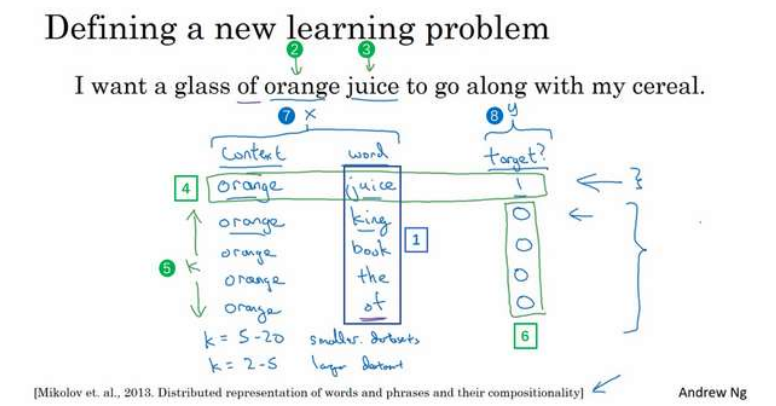 Defining a new learning problem
2 3
I want a glass of orange juice to go along with my cereal.
7 x 8 y
Context word target?
4 orange juice 1
orange king 0
orange book 0 1
5 k orange the 0
orange of 0
k = 5-20 smaller datasets 6
k = 2-5 larger dataset
[Mikolov et. al., 2013. Distributed representation of words and phrases and their compositionality] Andrew Ng